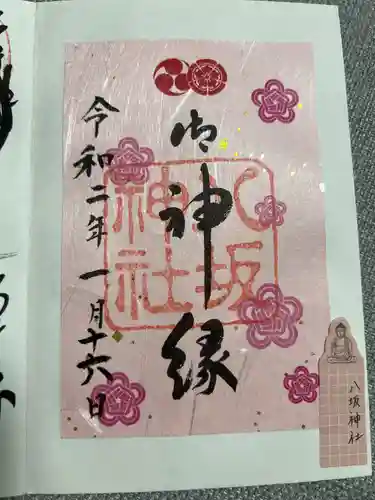 御神縁
八坂神社
令和二年一月十六日
八坂神社